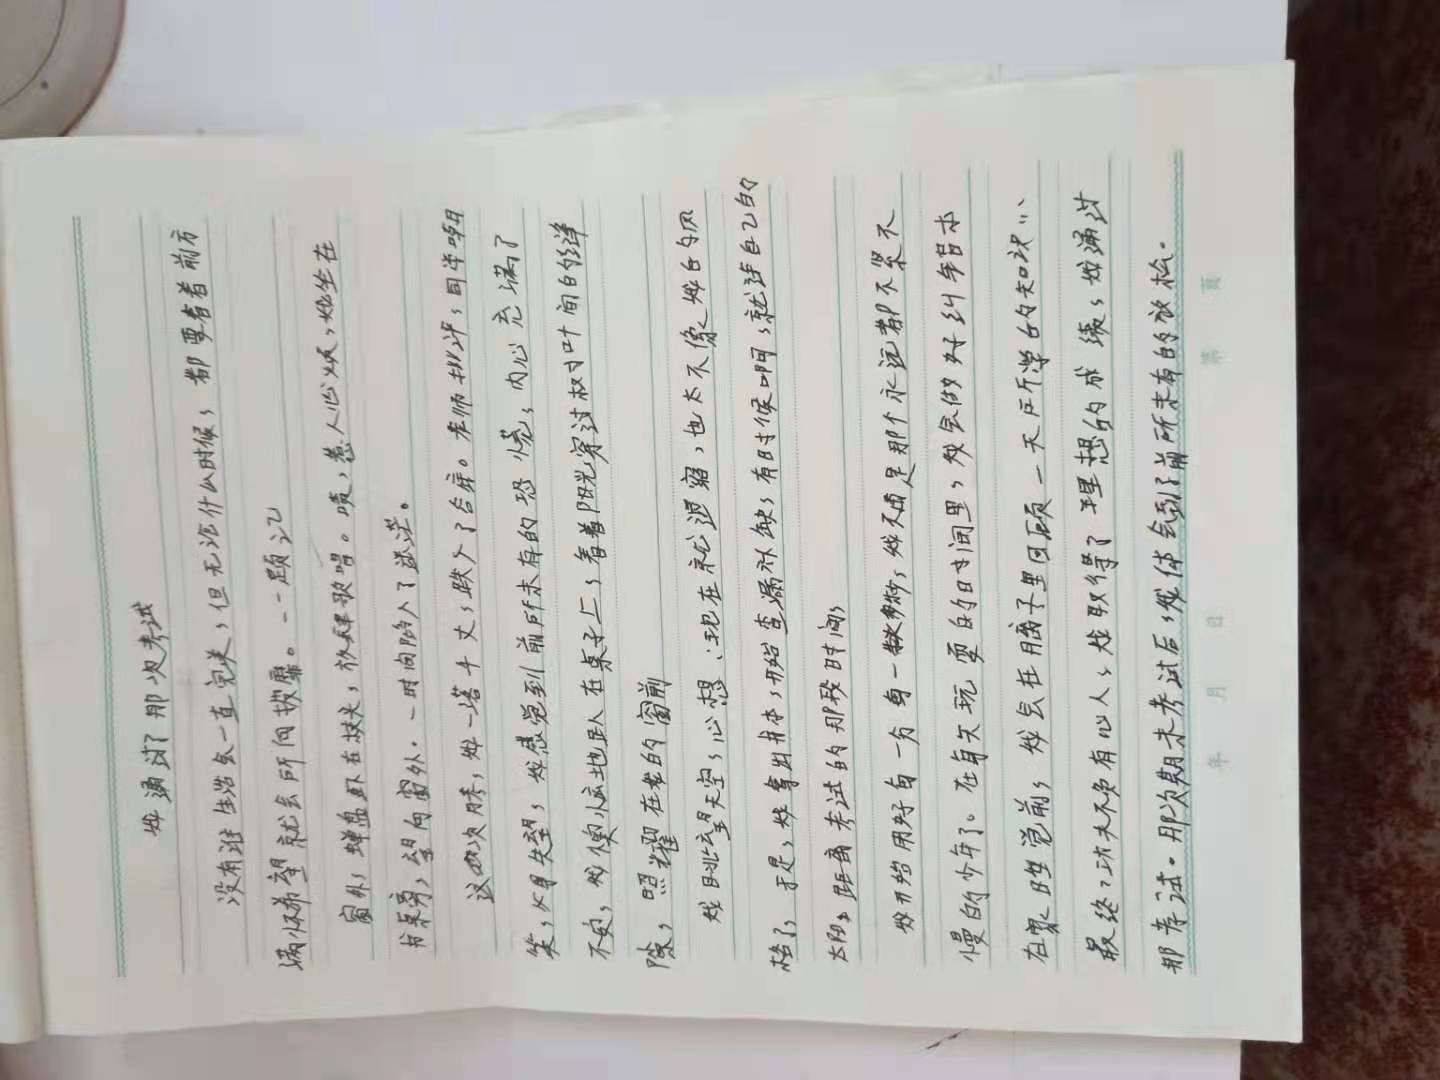 我通过了那次考试
没有谁生活会一直完美，但无论什么时候，都要看着前方
满怀希望就会所向披靡。--题记
窗外，蝉盘卧在枝头，放肆歌唱。啧，惹人心烦，我坐在
书桌旁，望向窗外。一时间陷入了迷茫。
这次月考，我一落千丈，跌入了谷底。老师批评，同学嘲
笑，父母失望，我感觉到前所未有的恐慌，内心充满了
不安，我懊恼地趴在桌子上，看着阳光穿过树叶间的缝
隙，照耀在我的窗前
我眺望天空，心想：现在就退缩，也太不像我的风
格了，于是，我拿出书本，开始查漏补缺，有时候啊，就该自己的
太阳，距离考试的那段时间，
我开始用好每一分每一秒，我不再是那个永远都不紧不
慢的少年了。在每次玩耍的时间里，我会做好纠错本
在睡觉前，我会在脑子里回顾一天所学的知识……
最终，功夫不负有心人，我取得了理想的成绩，我通过
那考试。那次期末考试后，我体会到了前所未有的放松。
年 月 日 第 页